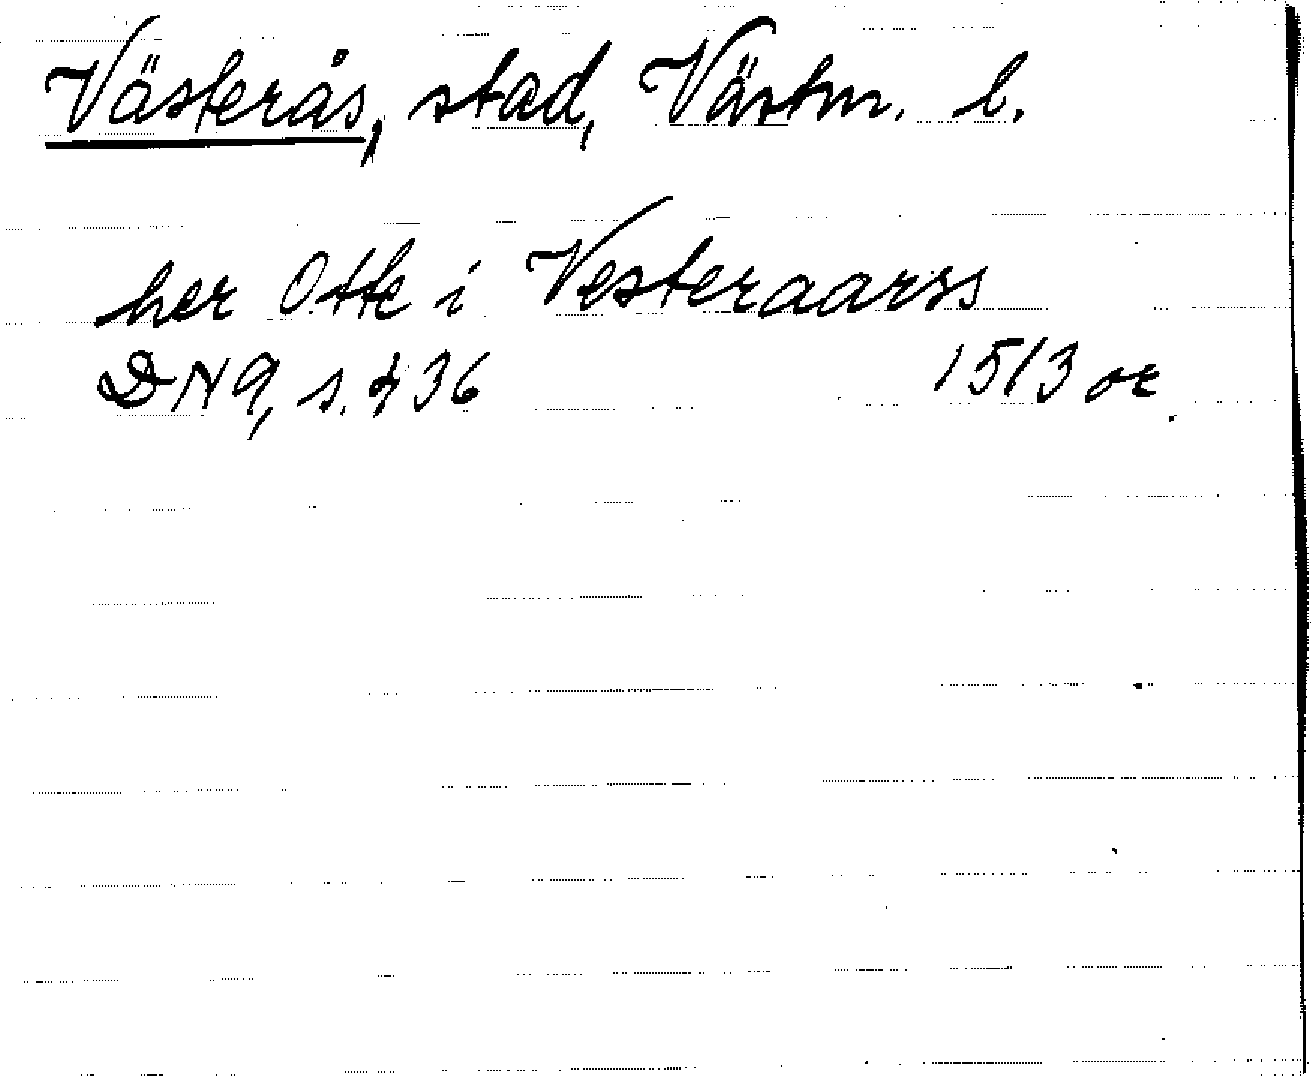 Västerås, stad, Västm. l.
her Otte i Vesteraarss
DN 9, s. 436 1513 or